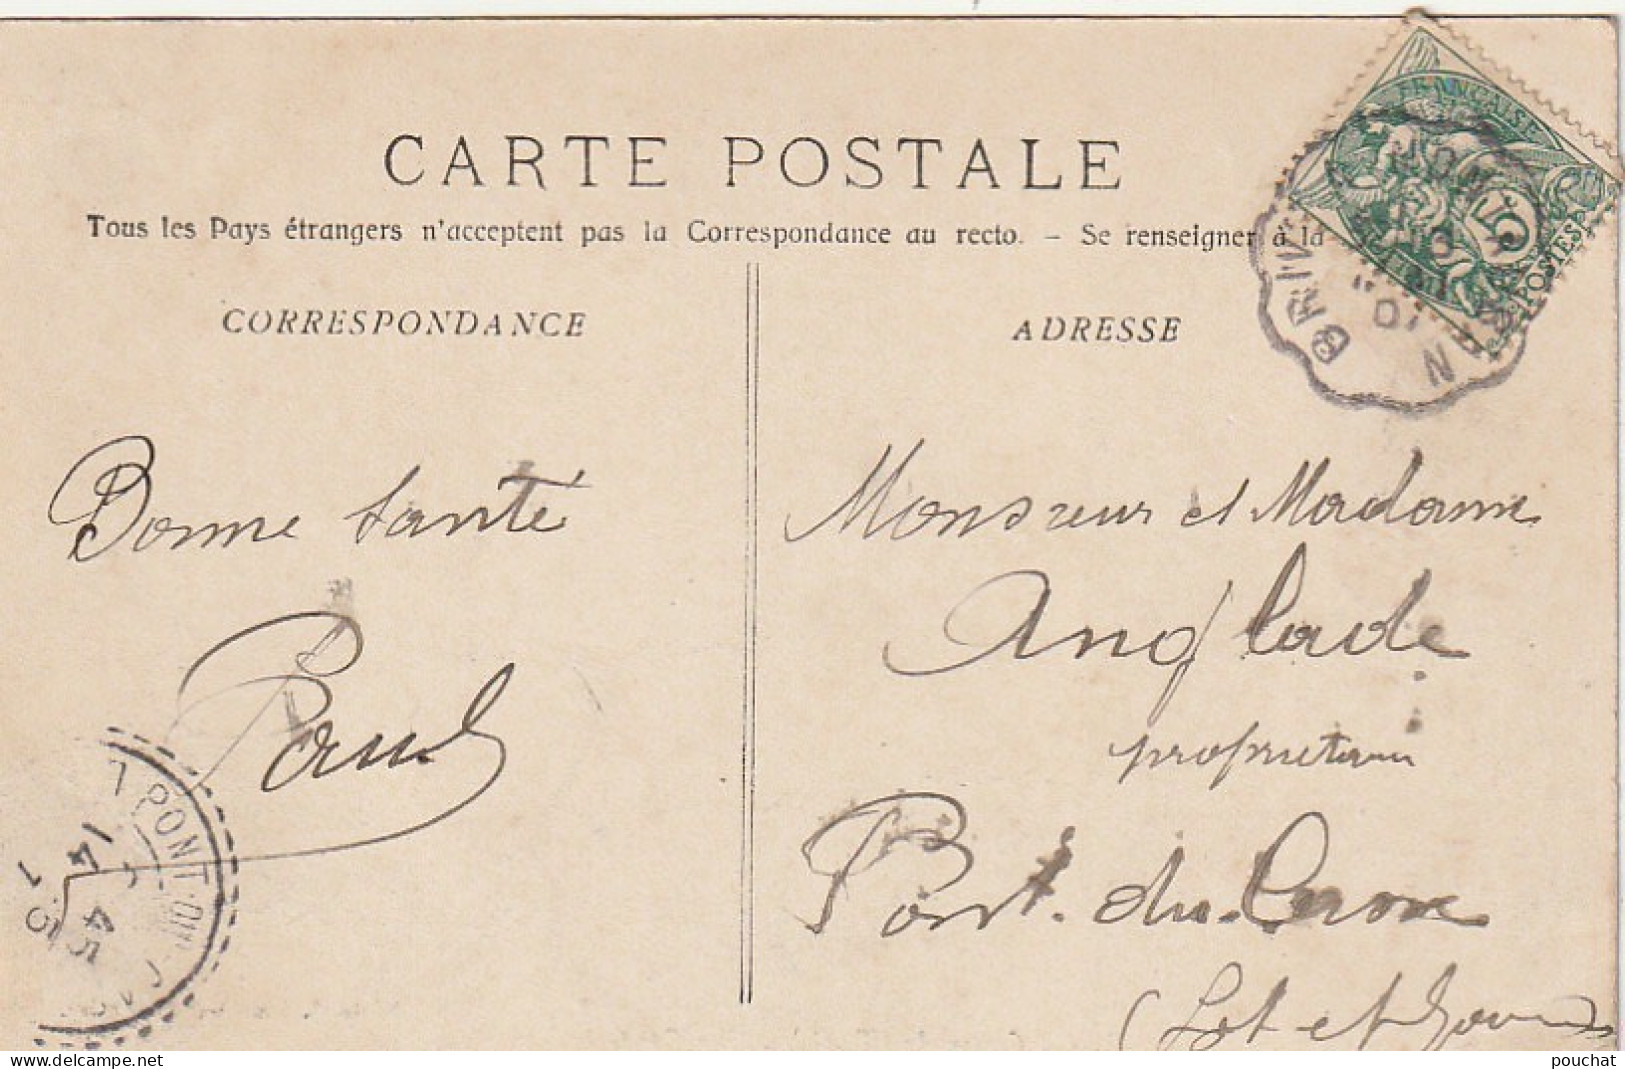 CARTE POSTALE
Tous les Pays étrangers n'acceptent pas la Correspondance au recto. – Se renseigner à la
CORRESPONDANCE
ADRESSE
Bonne santé
Paul
Monsieur et Madame
Anglade
propriétaire
Pont-du-Casse
(Lot et Garonne
FRANÇAISE
5
POSTES
BRIVE
PONT-DU-CAS
14 45
pouchat